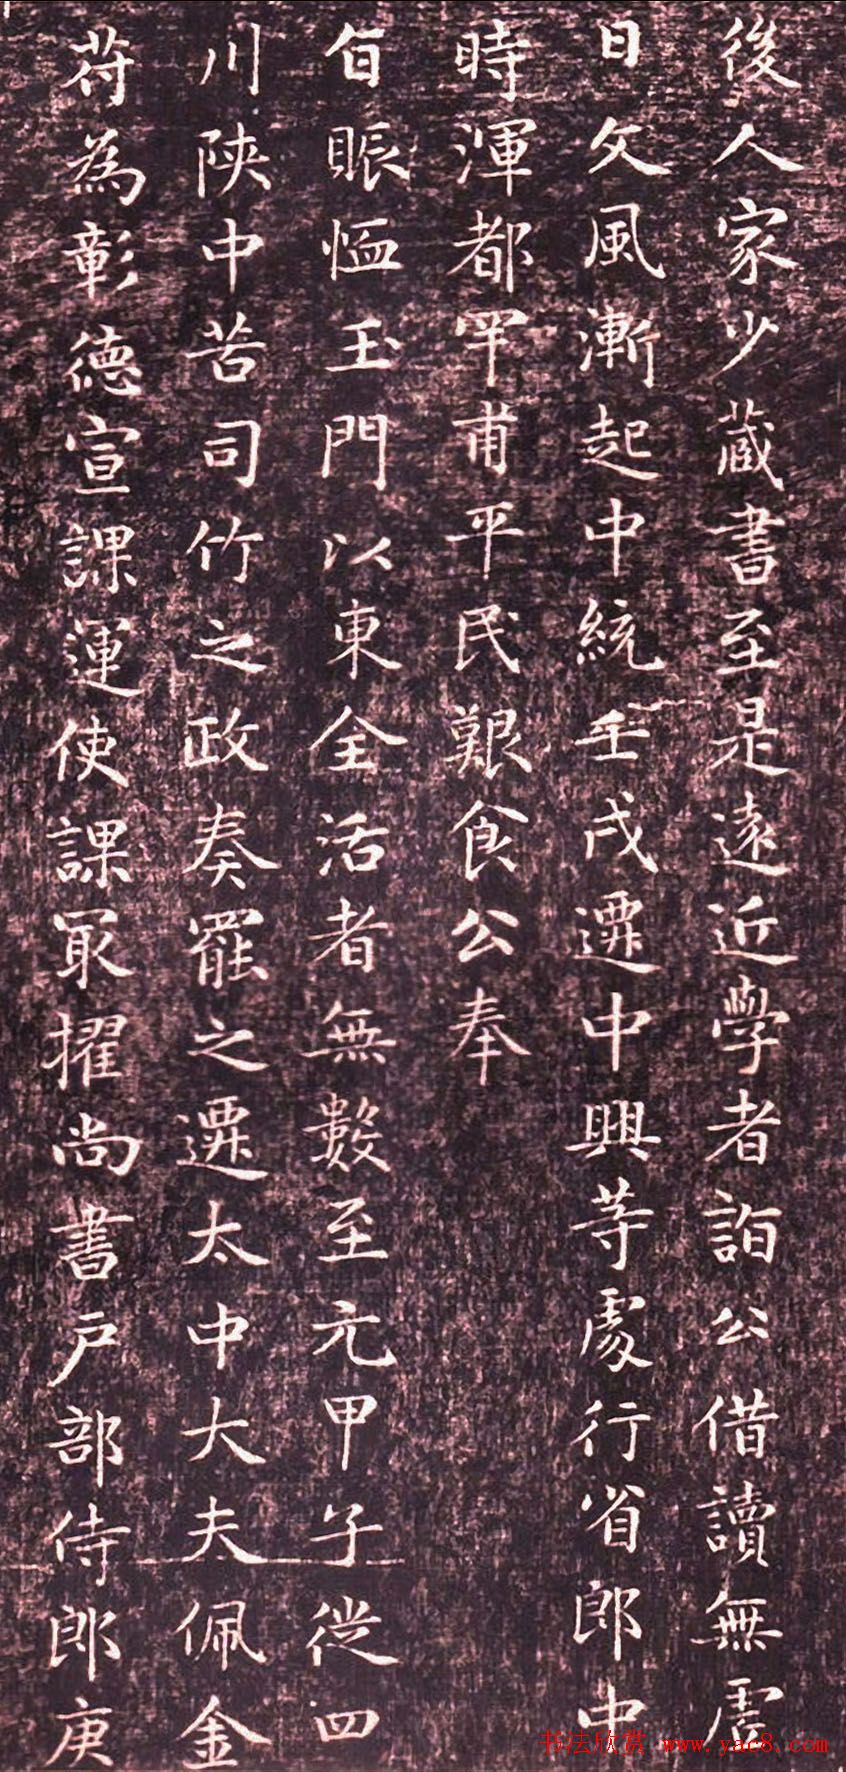 後人家少蔵書至是遠近學者詣公借讀無虚
日文風漸起中統壬戌遷中興等處行省郎中
時渾都罕甫平民艱食公奉
旨賑恤玉門以東全活者無數至元甲子從四
川陝中苦司竹之政奏罷之遷太中大夫佩金
符為彰德宣課運使課最擢尚書戶部侍郎庚
书法欣赏 www.yac8.com